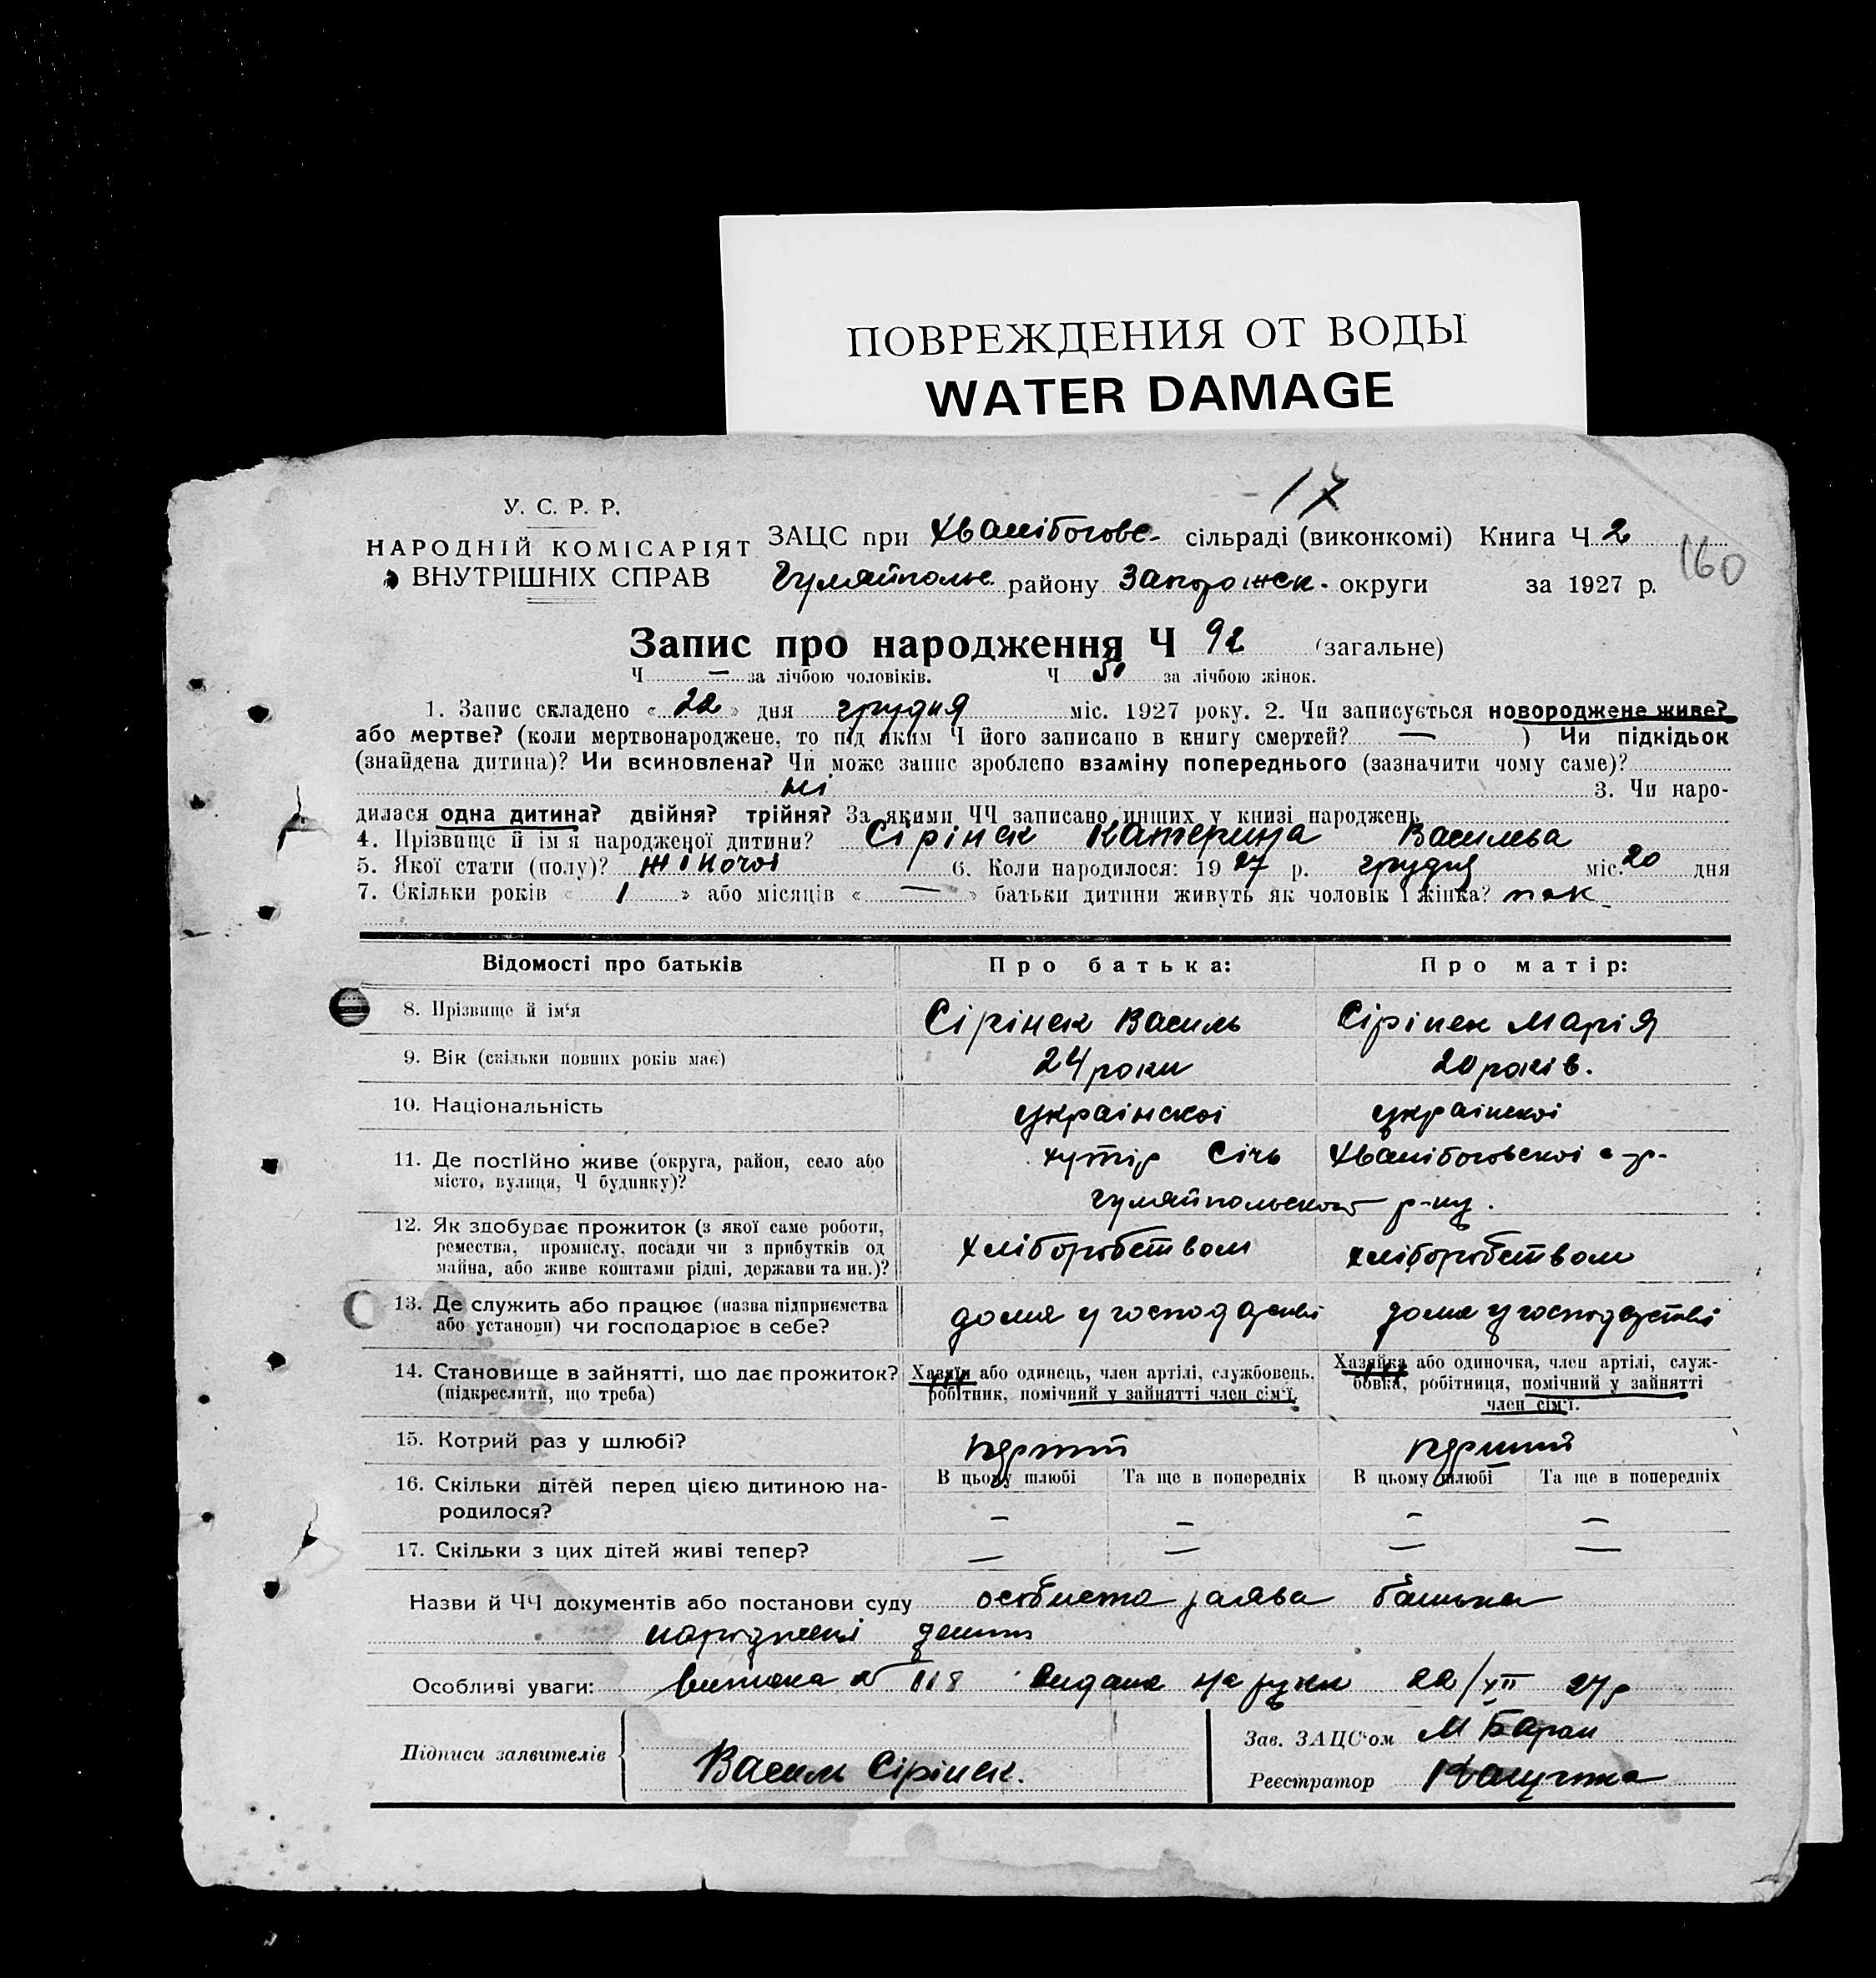 ПОВРЕЖДЕНИЯ ОТ ВОДЫ
WATER DAMAGE
17
У. С. Р. Р.
НАРОДНІЙ КОМІСАРІЯТ
ВНУТРІШНІХ СПРАВ
ЗАЦС при Хвалібогове- сільраді (виконкомі) Книга Ч 2
160
Гуляйпольс. району Запорожск. округи за 1927 р.
Запис про народження Ч 92 (загальне)
Ч — за лічбою чоловіків. Ч 50 за лічбою жінок.
1. Запис складено « 22 » дня грудня міс. 1927 року. 2. Чи записується новороджене живе?
або мертве? (коли мертвонароджене, то під яким Ч його записано в книгу смертей? — ) Чи підкідьок
(знайдена дитина)? Чи всиновлена? Чи може запис зроблено взаміну попереднього (зазначити чому саме)?
ні 3. Чи наро-
дилася одна дитина? двійня? трійня? За якими ЧЧ записано инших у книзі народжень
4. Прізвище й ім'я народженої дитини? Сірінек Катерина Васильва
5. Якої стати (полу)? жіночоі 6. Коли народилося: 1927 р. грудня міс. 20 дня
7. Скільки років « 1 » або місяців « — » батьки дитини живуть як чоловік і жінка? так
Відомості про батьків Про батька: Про матір:
8. Прізвище й ім'я Сірінек Василь Сірінек Марія
9. Вік (скільки повних років має) 24 роки 20 років.
10. Національність украінскоі украінскоі
11. Де постійно живе (округа, район, село або місто, вулиця, Ч будинку)? хутір Січь Хвалібоговскоі с-р-
гуляйпольского р-ну.
12. Як здобуває прожиток (з якої саме роботи,
ремества, промислу, посади чи з прибутків од
майна, або живе коштами рідні, держави та ин.)? хліборобством хліборобством
13. Де служить або працює (назва підприємства
або установи) чи господарює в себе? дома у господарстві дома у господарстві
14. Становище в зайнятті, що дає прожиток?
(підкреслити, що треба)
Хазяїн або одинець, член артілі, службовець,
робітник, помічний у зайнятті член сім'ї.
Хазяйка або одиночка, член артілі, служ-
бовка, робітниця, помічний у зайнятті
член сім'ї.
15. Котрий раз у шлюбі? перший перший
16. Скільки дітей перед цією дитиною на-
родилося?
В цьому шлюбі Та ще в попередніх В цьому шлюбі Та ще в попередніх
— — — —
17. Скільки з цих дітей живі тепер? — — — —
Назви й ЧЧ документів або постанови суду особиста заява батька
Особливі уваги: витяка № 118 видана на руки 22/XII 27р
Підписи заявителів
Василь Сірінек.
Зав. ЗАЦС'ом М Баран
Реєстратор